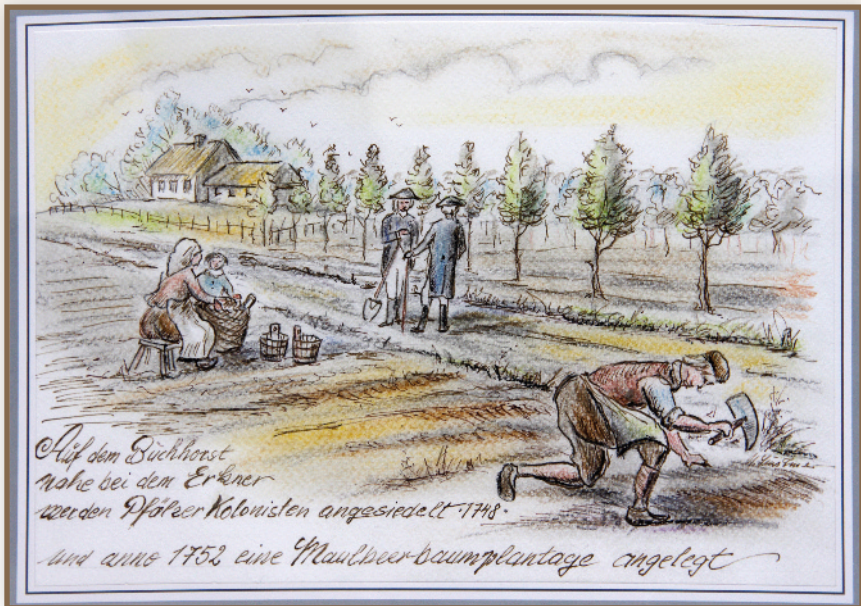 Auf dem Büchhorst
nahe bei dem Erkner
werden Pfälzer Kolonisten angesiedelt · 1748 ·
und anno 1752 eine Maulbeerbaumplantage angelegt